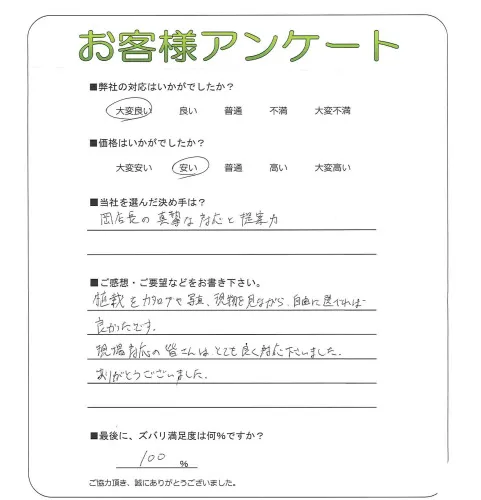 お客様アンケート
■弊社の対応はいかがでしたか？
大変良い 良い 普通 不満 大変不満
■価格はいかがでしたか？
大変安い 安い 普通 高い 大変高い
■当社を選んだ決め手は？
岡店長の真摯な対応と提案力
■ご感想・ご要望などをお書き下さい。
植栽をカタログや写真、現物を見ながら、自由に選べれば
良かったです。
現場対応の皆さんはとても良く対応下さいました。
ありがとうございました。
■最後に、ズバリ満足度は何％ですか？
100 %
ご協力頂き、誠にありがとうございました。